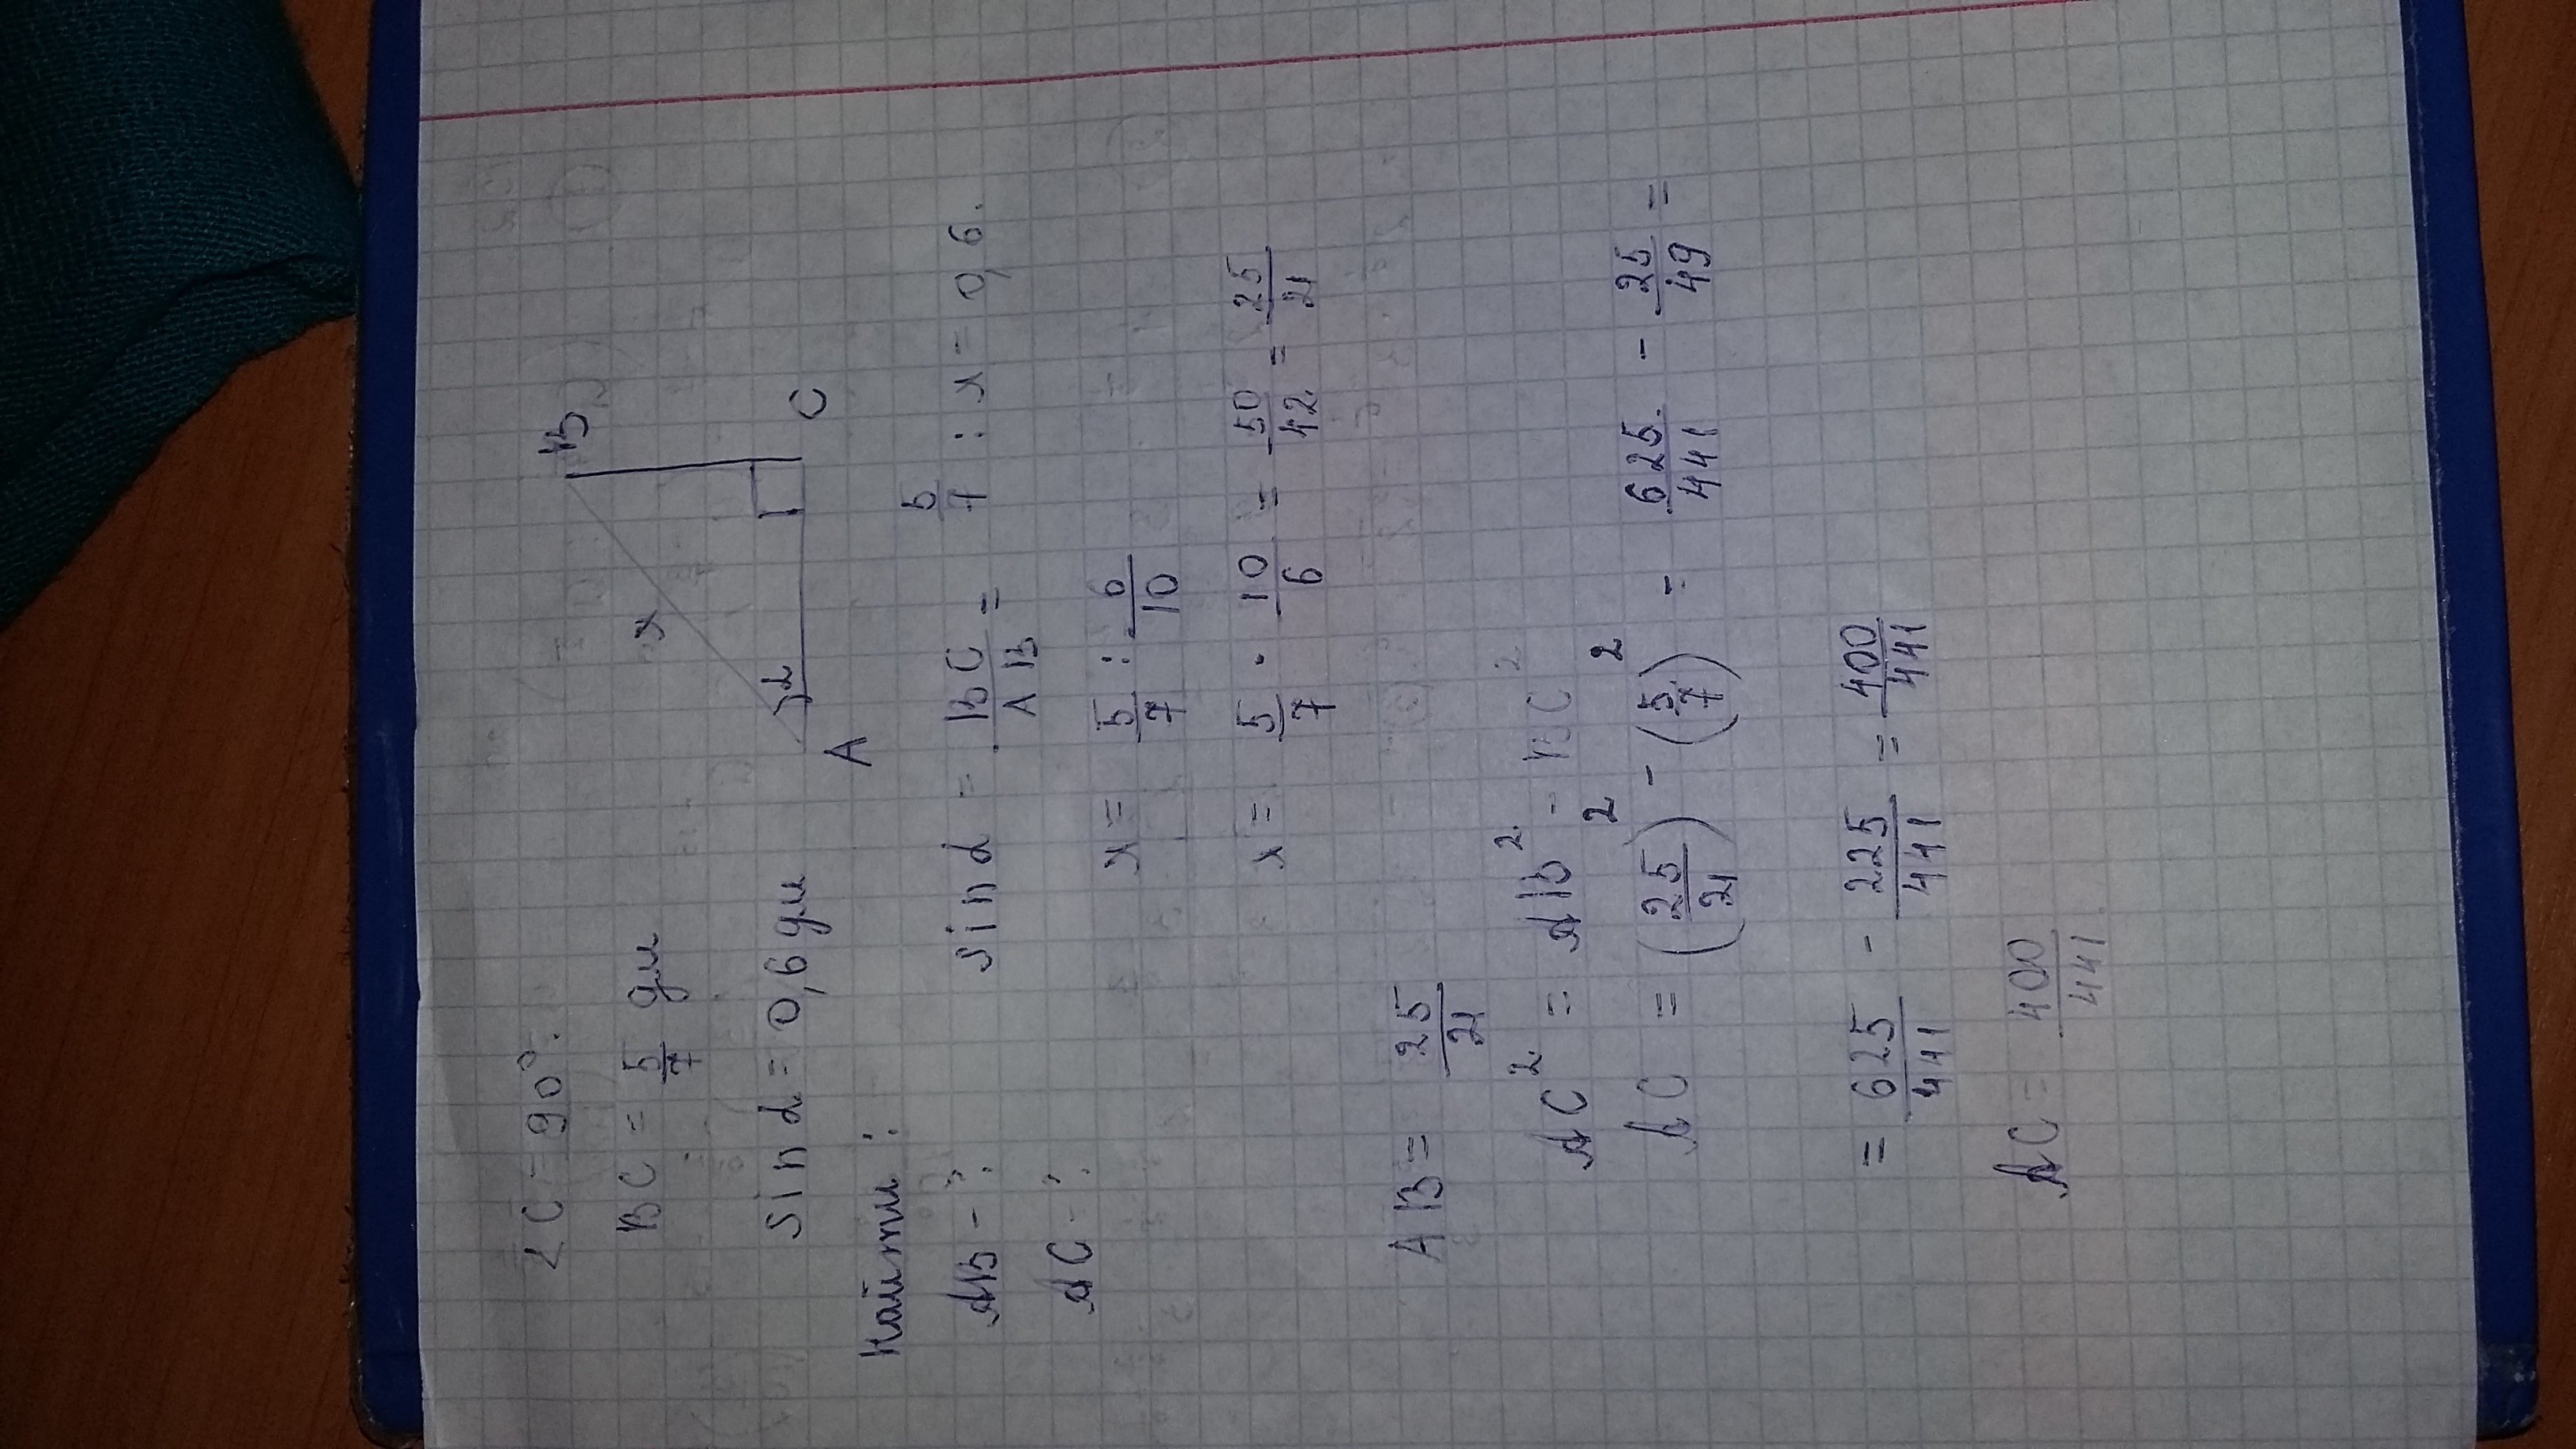 ∠C = 90°.
BC = 5/7 дм
sin α = 0,6 дм
Найти:
AB - ?
AC - ?
B
x
α
A
C
sin α = BC/AB = 5/7 : x = 0,6.
x = 5/7 : 6/10
x = 5/7 · 10/6 = 50/42 = 25/21
AB = 25/21
AC² = AB² - BC²
AC = (25/21)² - (5/7)² = 625/441 - 25/49 =
= 625/441 - 225/441 = 400/441
AC = 400/441